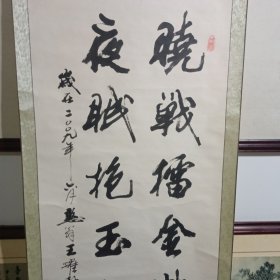 曉戰擂金
夜眠抱玉
歲在二〇〇九年六月